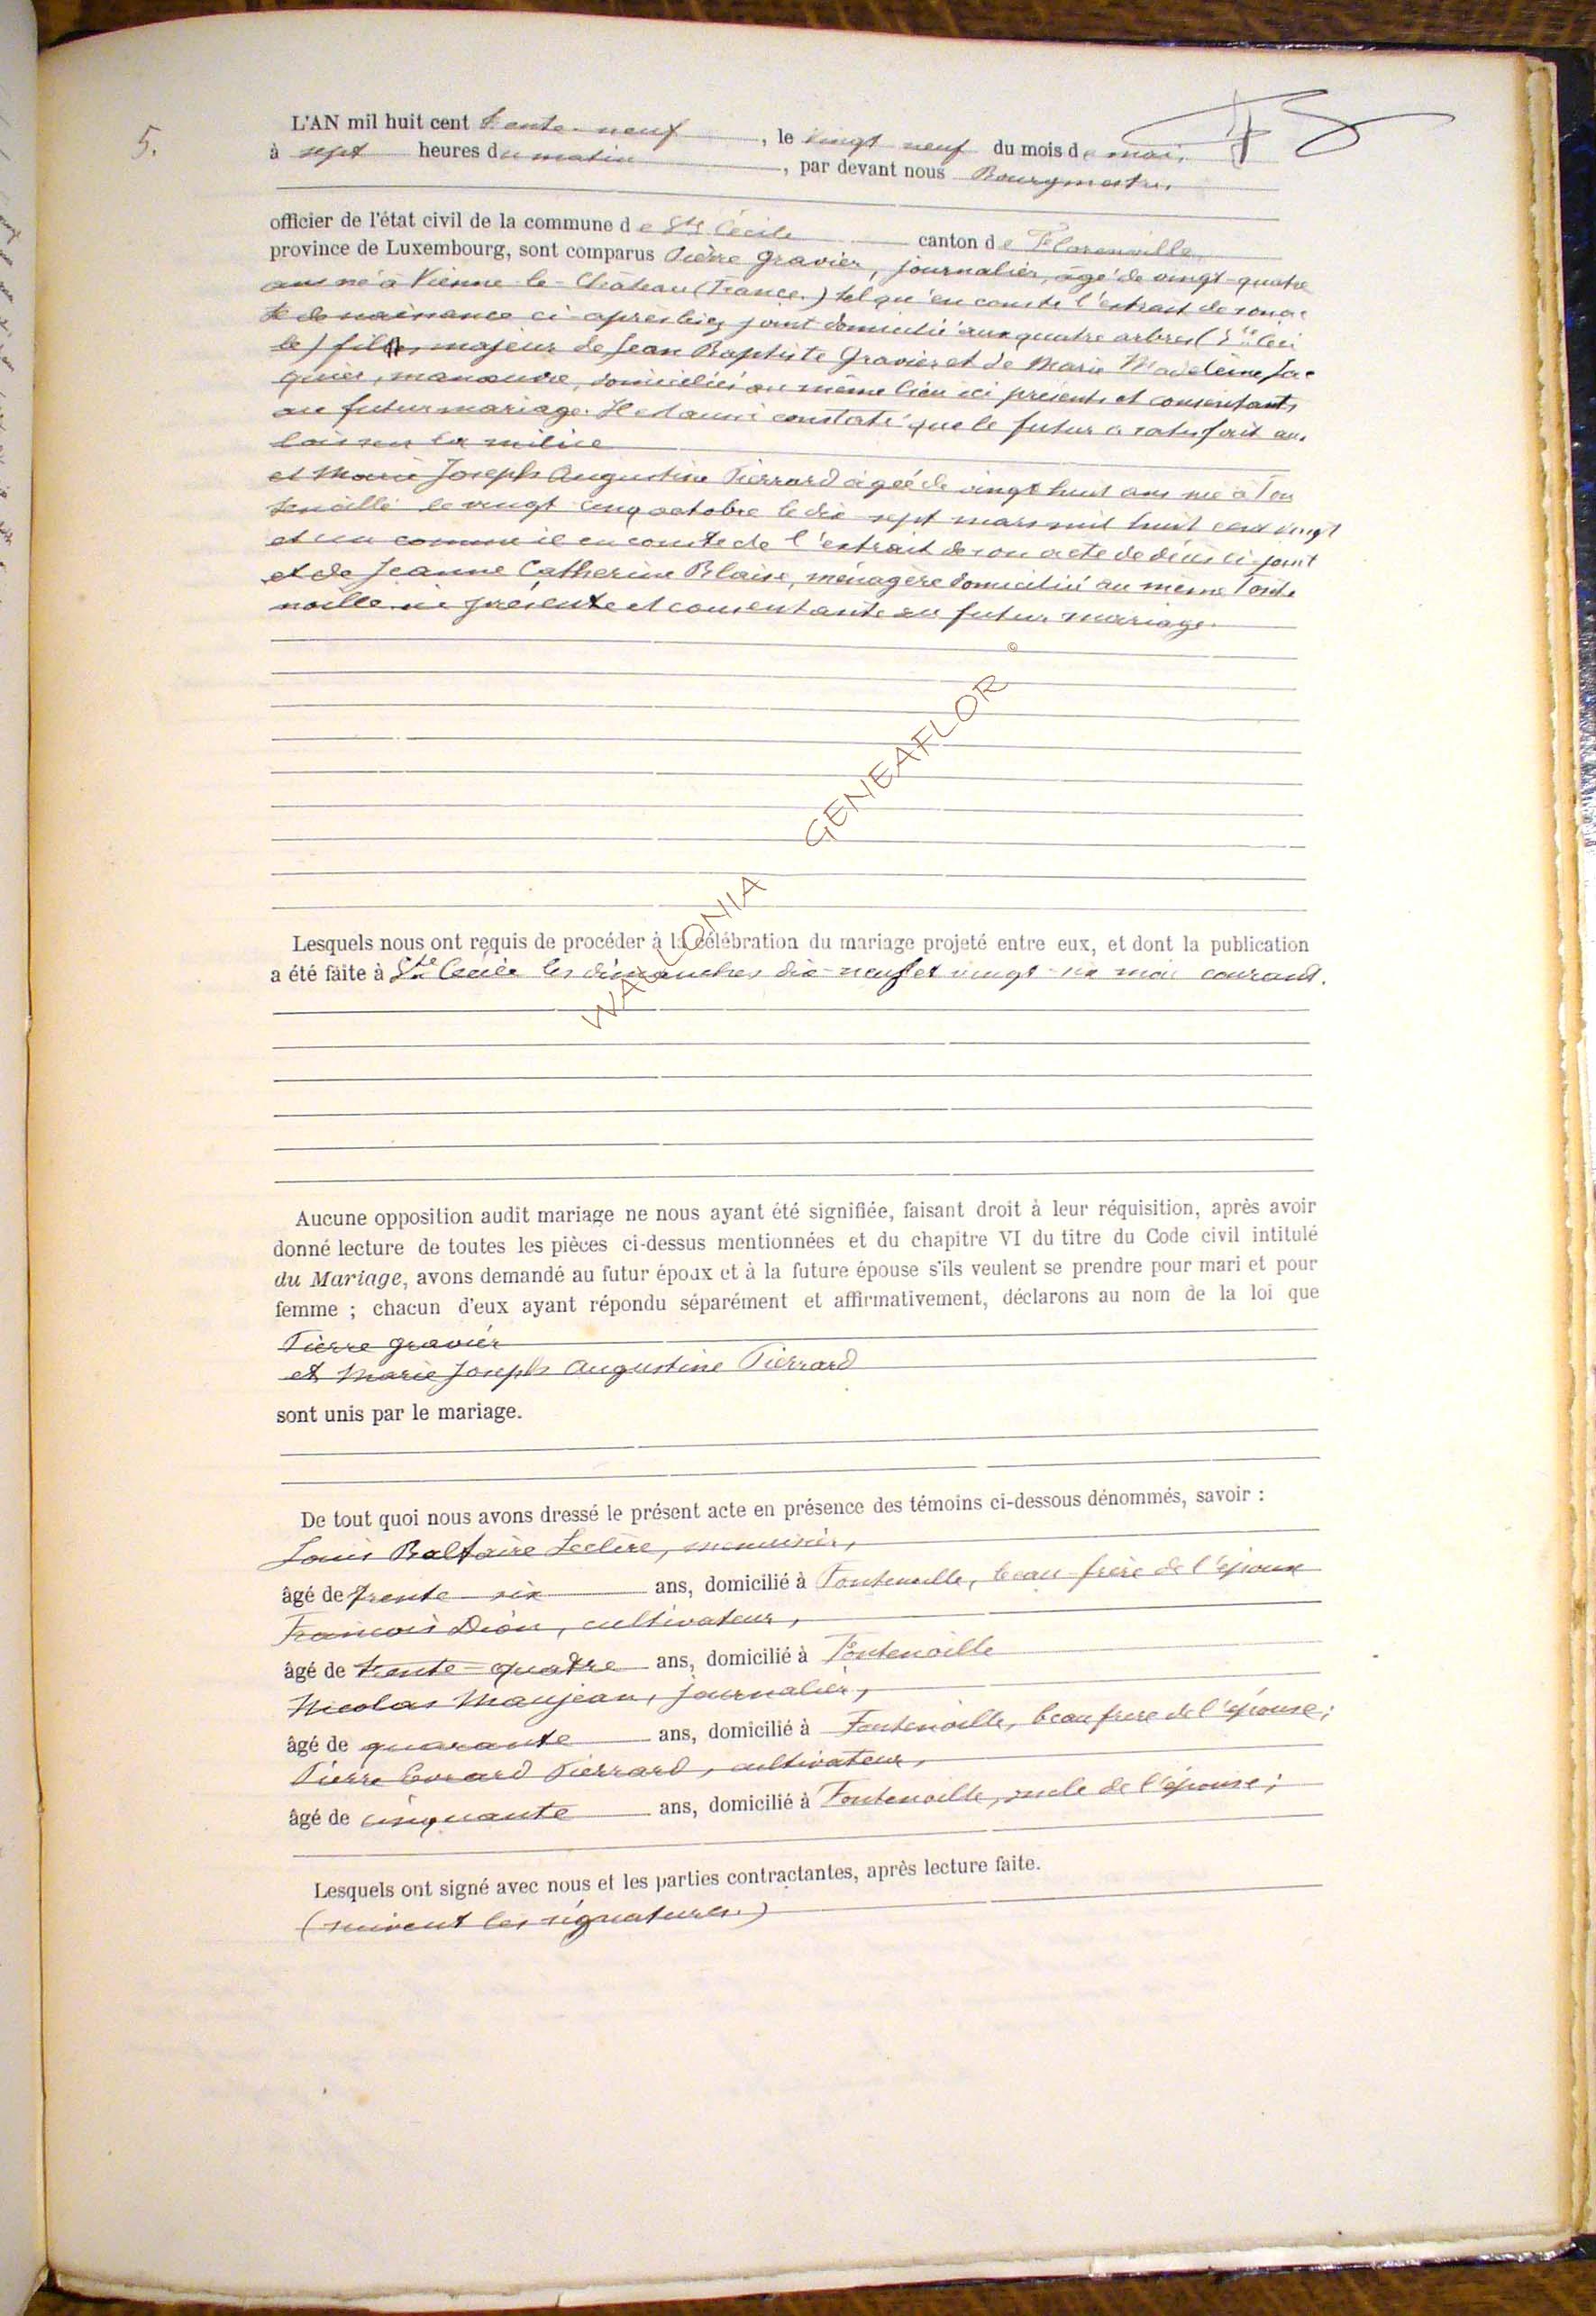 5.
L'AN mil huit cent trente-neuf, le vingt neuf du mois de mai,
à sept heures du matin, par devant nous Bourgmestre,
officier de l'état civil de la commune de Ste Cécile canton de Florenville
province de Luxembourg, sont comparus Pierre Gravier, journalier, âgé de vingt-quatre
ans né à Vienne-le-Château (France.) tel qu'en conste l'extrait de son ac
te de naissance ci-après joint domicilié aux quatre arbres (Ste Céci
le) fils, majeur de Jean Baptiste Gravier et de Marie Madeleine Jac
ques, manœuvre, domiciliés au même lieu ici présents et consentants
au futur mariage. Il est aussi constaté que le futur a satisfait aux
lois sur la milice
et Marie Joseph Augustine Pierrard âgée de vingt huit ans née à Fon
tenoille le vingt cinq octobre le dix sept mars mil huit cent vingt
et un comme il en conste de l'extrait de son acte de décès ci-joint
et de Jeanne Catherine Blaise, ménagère domicilié au meme Fonte
noille ici présente et consentante au futur mariage.
Lesquels nous ont requis de procéder à la célébration du mariage projeté entre eux, et dont la publication
a été faite à Ste Cécile les dimanches dix-neuf et vingt-six mai courant.
Aucune opposition audit mariage ne nous ayant été signifiée, faisant droit à leur réquisition, après avoir
donné lecture de toutes les pièces ci-dessus mentionnées et du chapitre VI du titre du Code civil intitulé
du Mariage, avons demandé au futur époux et à la future épouse s'ils veulent se prendre pour mari et pour
femme ; chacun d'eux ayant répondu séparément et affirmativement, déclarons au nom de la loi que
Pierre Gravier
et Marie Joseph Augustine Pierrard
sont unis par le mariage.
De tout quoi nous avons dressé le présent acte en présence des témoins ci-dessous dénommés, savoir :
Louis Baltaire Leclère, menuisier,
âgé de trente-six ans, domicilié à Fontenoille, beau-frère de l'époux
François Dion, cultivateur,
âgé de trente-quatre ans, domicilié à Fontenoille
Nicolas Maujean, journalier,
âgé de quarante ans, domicilié à Fontenoille, beau frere de l'épouse;
Pierre Evrard Pierrard, cultivateur,
âgé de cinquante ans, domicilié à Fontenoille, oncle de l'épouse;
Lesquels ont signé avec nous et les parties contractantes, après lecture faite.
(suivent les signatures.)
WALLONIA GENEAFLOR ©